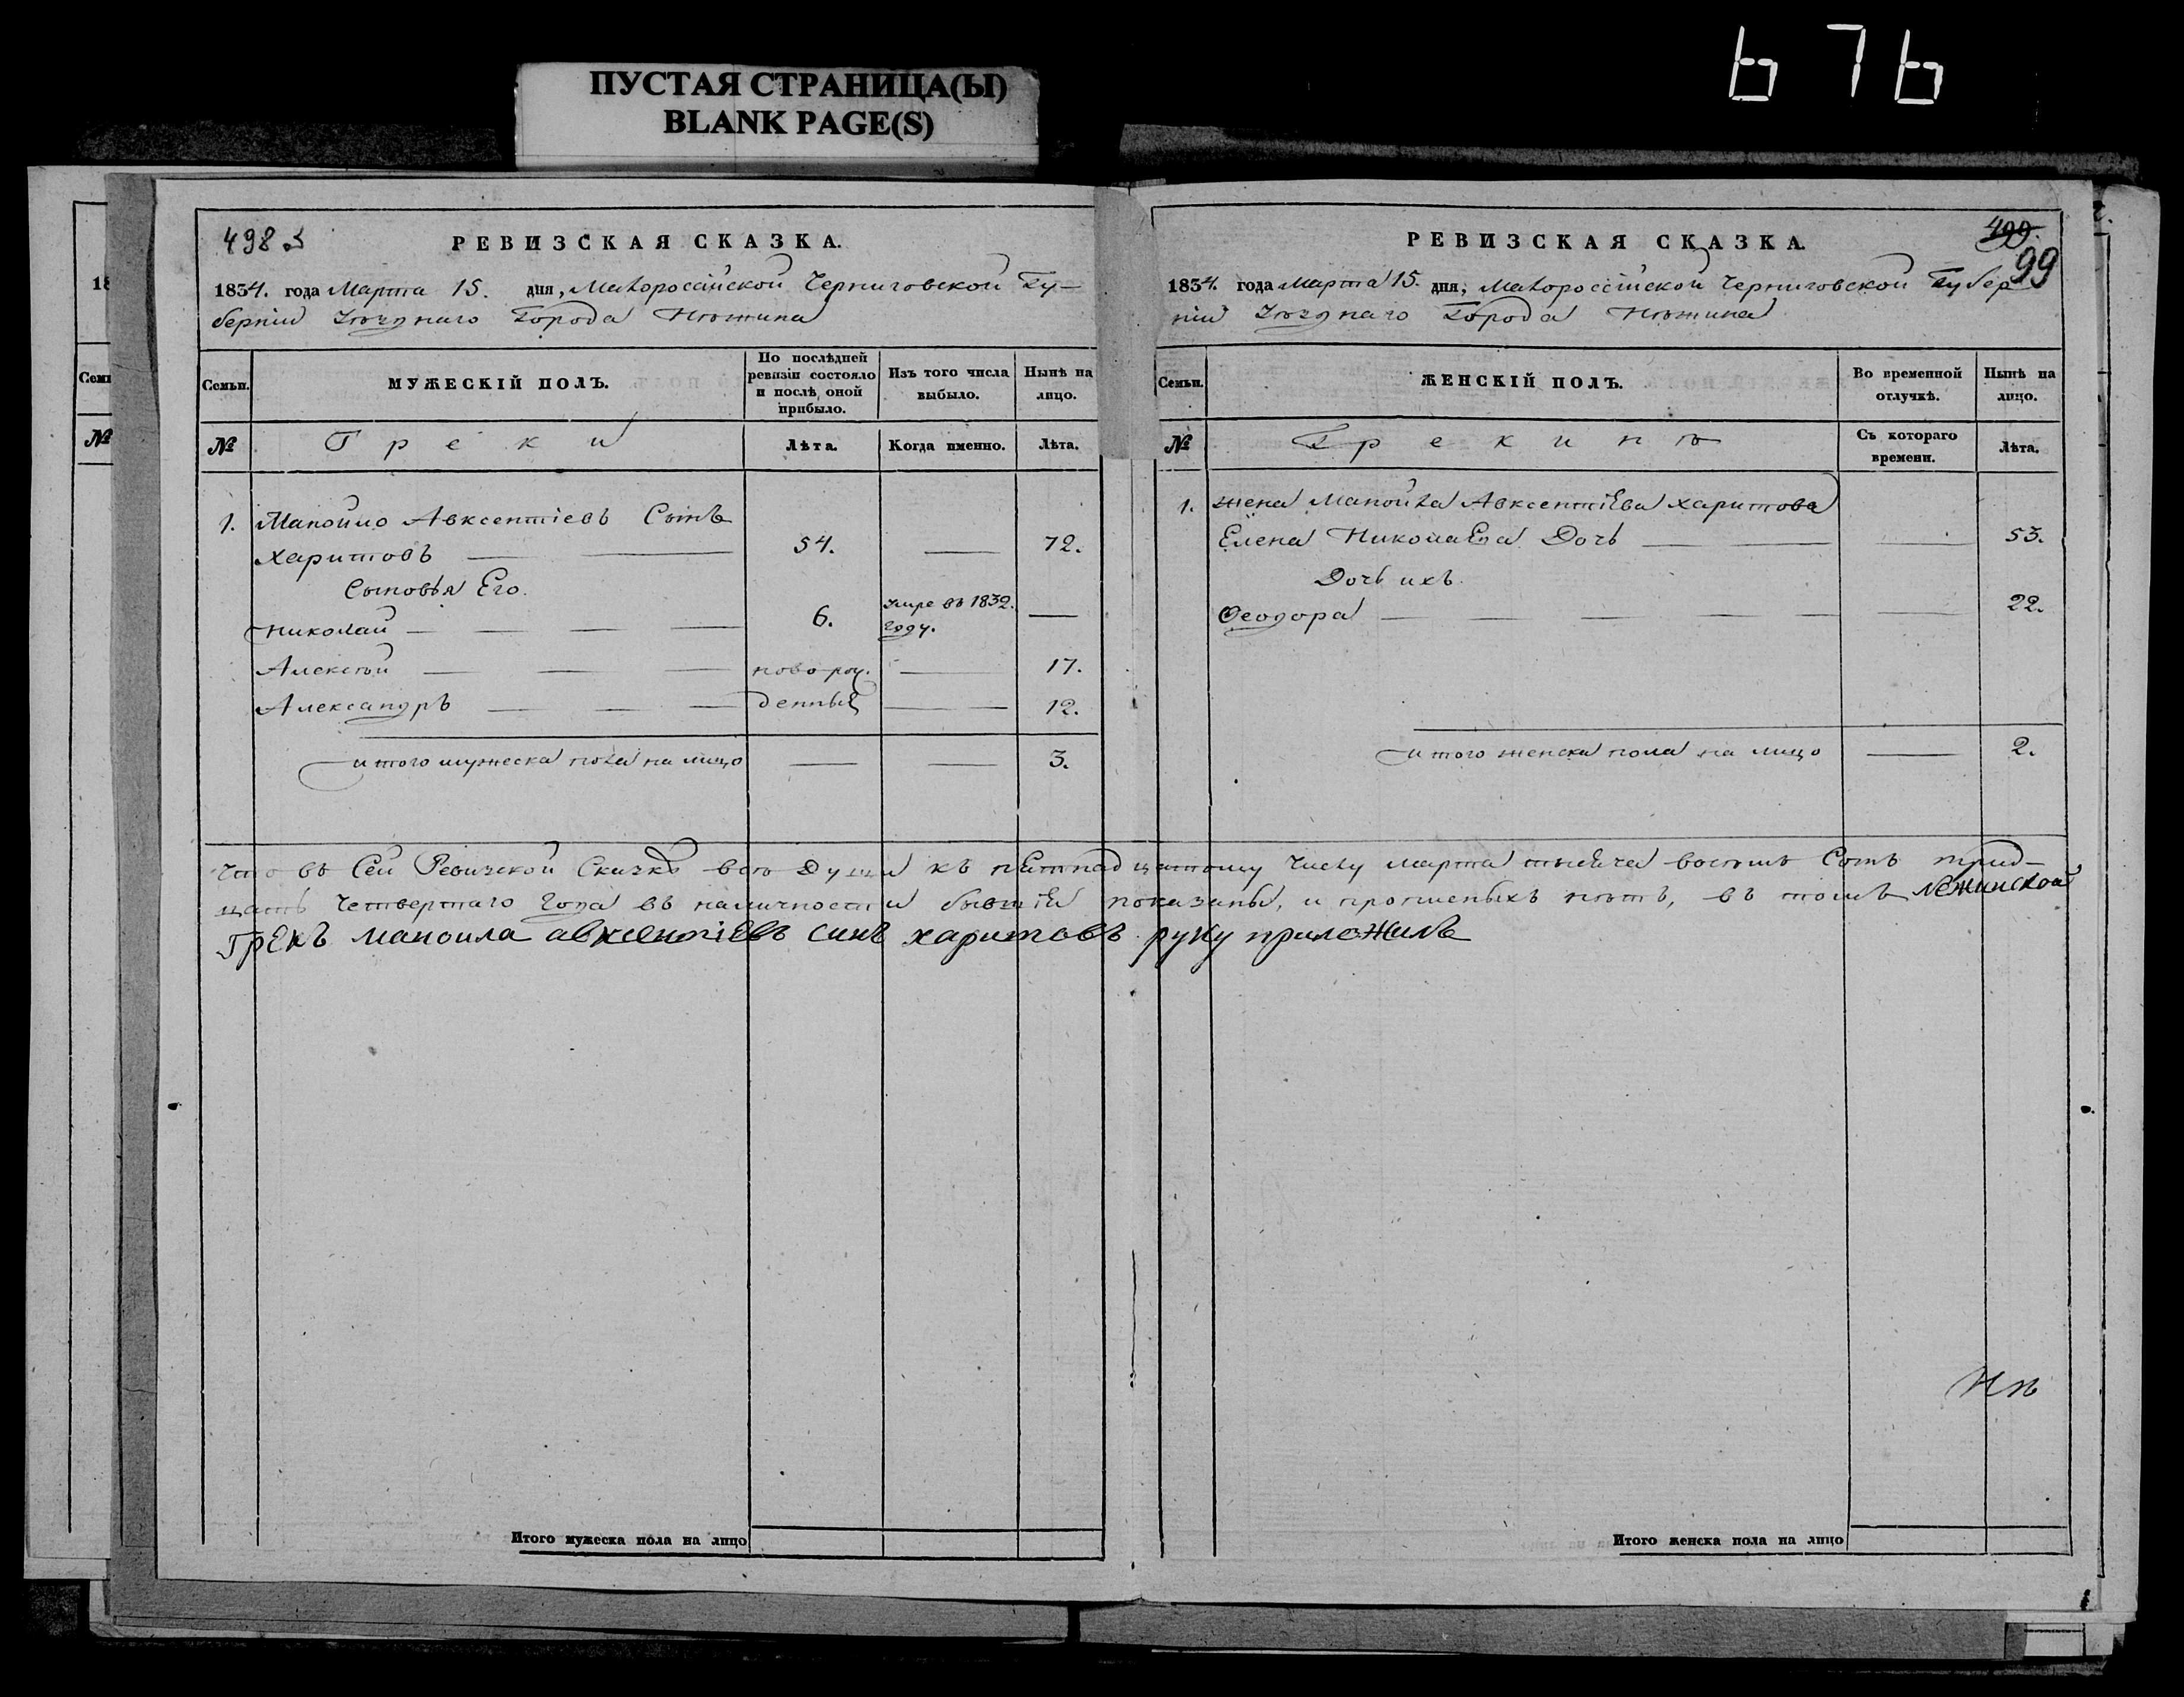 ПУСТАЯ СТРАНИЦА(Ы)
BLANK PAGE(S)
498
РЕВИЗСКАЯ СКАЗКА.
1834. года Марта 15. дня, Малороссійской Черниговской Гу-
берніи Уѣзднаго Города Нѣжина
Семьи.
МУЖЕСКІЙ ПОЛЪ.
По послѣдней ревизіи состояло и послѣ оной прибыло.
Изъ того числа выбыло.
Нынѣ на лицо.
№ Греки Лѣта. Когда именно. Лѣта.
1. Манойло Авксентіевъ Сынъ
Харитовъ — 54. — 72.
Сыновья Его.
Николай — 6. умре въ 1832. году. —
Алексѣй — ново-рож. — 17.
Александръ — денныя — 12.
и того мужеска пола на лицо — — 3.
499.
99
РЕВИЗСКАЯ СКАЗКА.
1834. года Марта 15. дня, Малороссійской Черниговской Губер
ніи Уѣзднаго Города Нѣжина
Семьи.
ЖЕНСКІЙ ПОЛЪ.
Во временной отлучкѣ.
Нынѣ на лицо.
№ Грекинѣ Съ котораго времени. Лѣта.
1. жена Манойла Авксентіева Харитова
Елена Николаева Дочь — — 53.
Дочь ихъ.
Ѳеодора — — 22.
и того женска пола на лицо — 2.
Что въ Сей Ревизской Сказкѣ всѣ Души къ пятнадцатому числу марта тысяча восемь Сотъ трид-
цать Четвертаго Года въ наличности бывшія показаны, и прописныхъ нѣтъ, въ томъ Нежинской
грекъ маноила авксентіевъ синъ харитовъ руку приложилъ
Итого мужеска пола на лицо
Итого женска пола на лицо